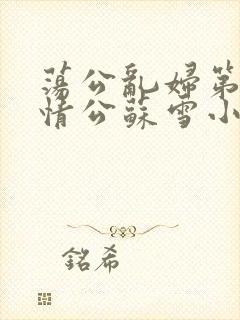 蕩公亂婦第
情公蘇雪小
銘希